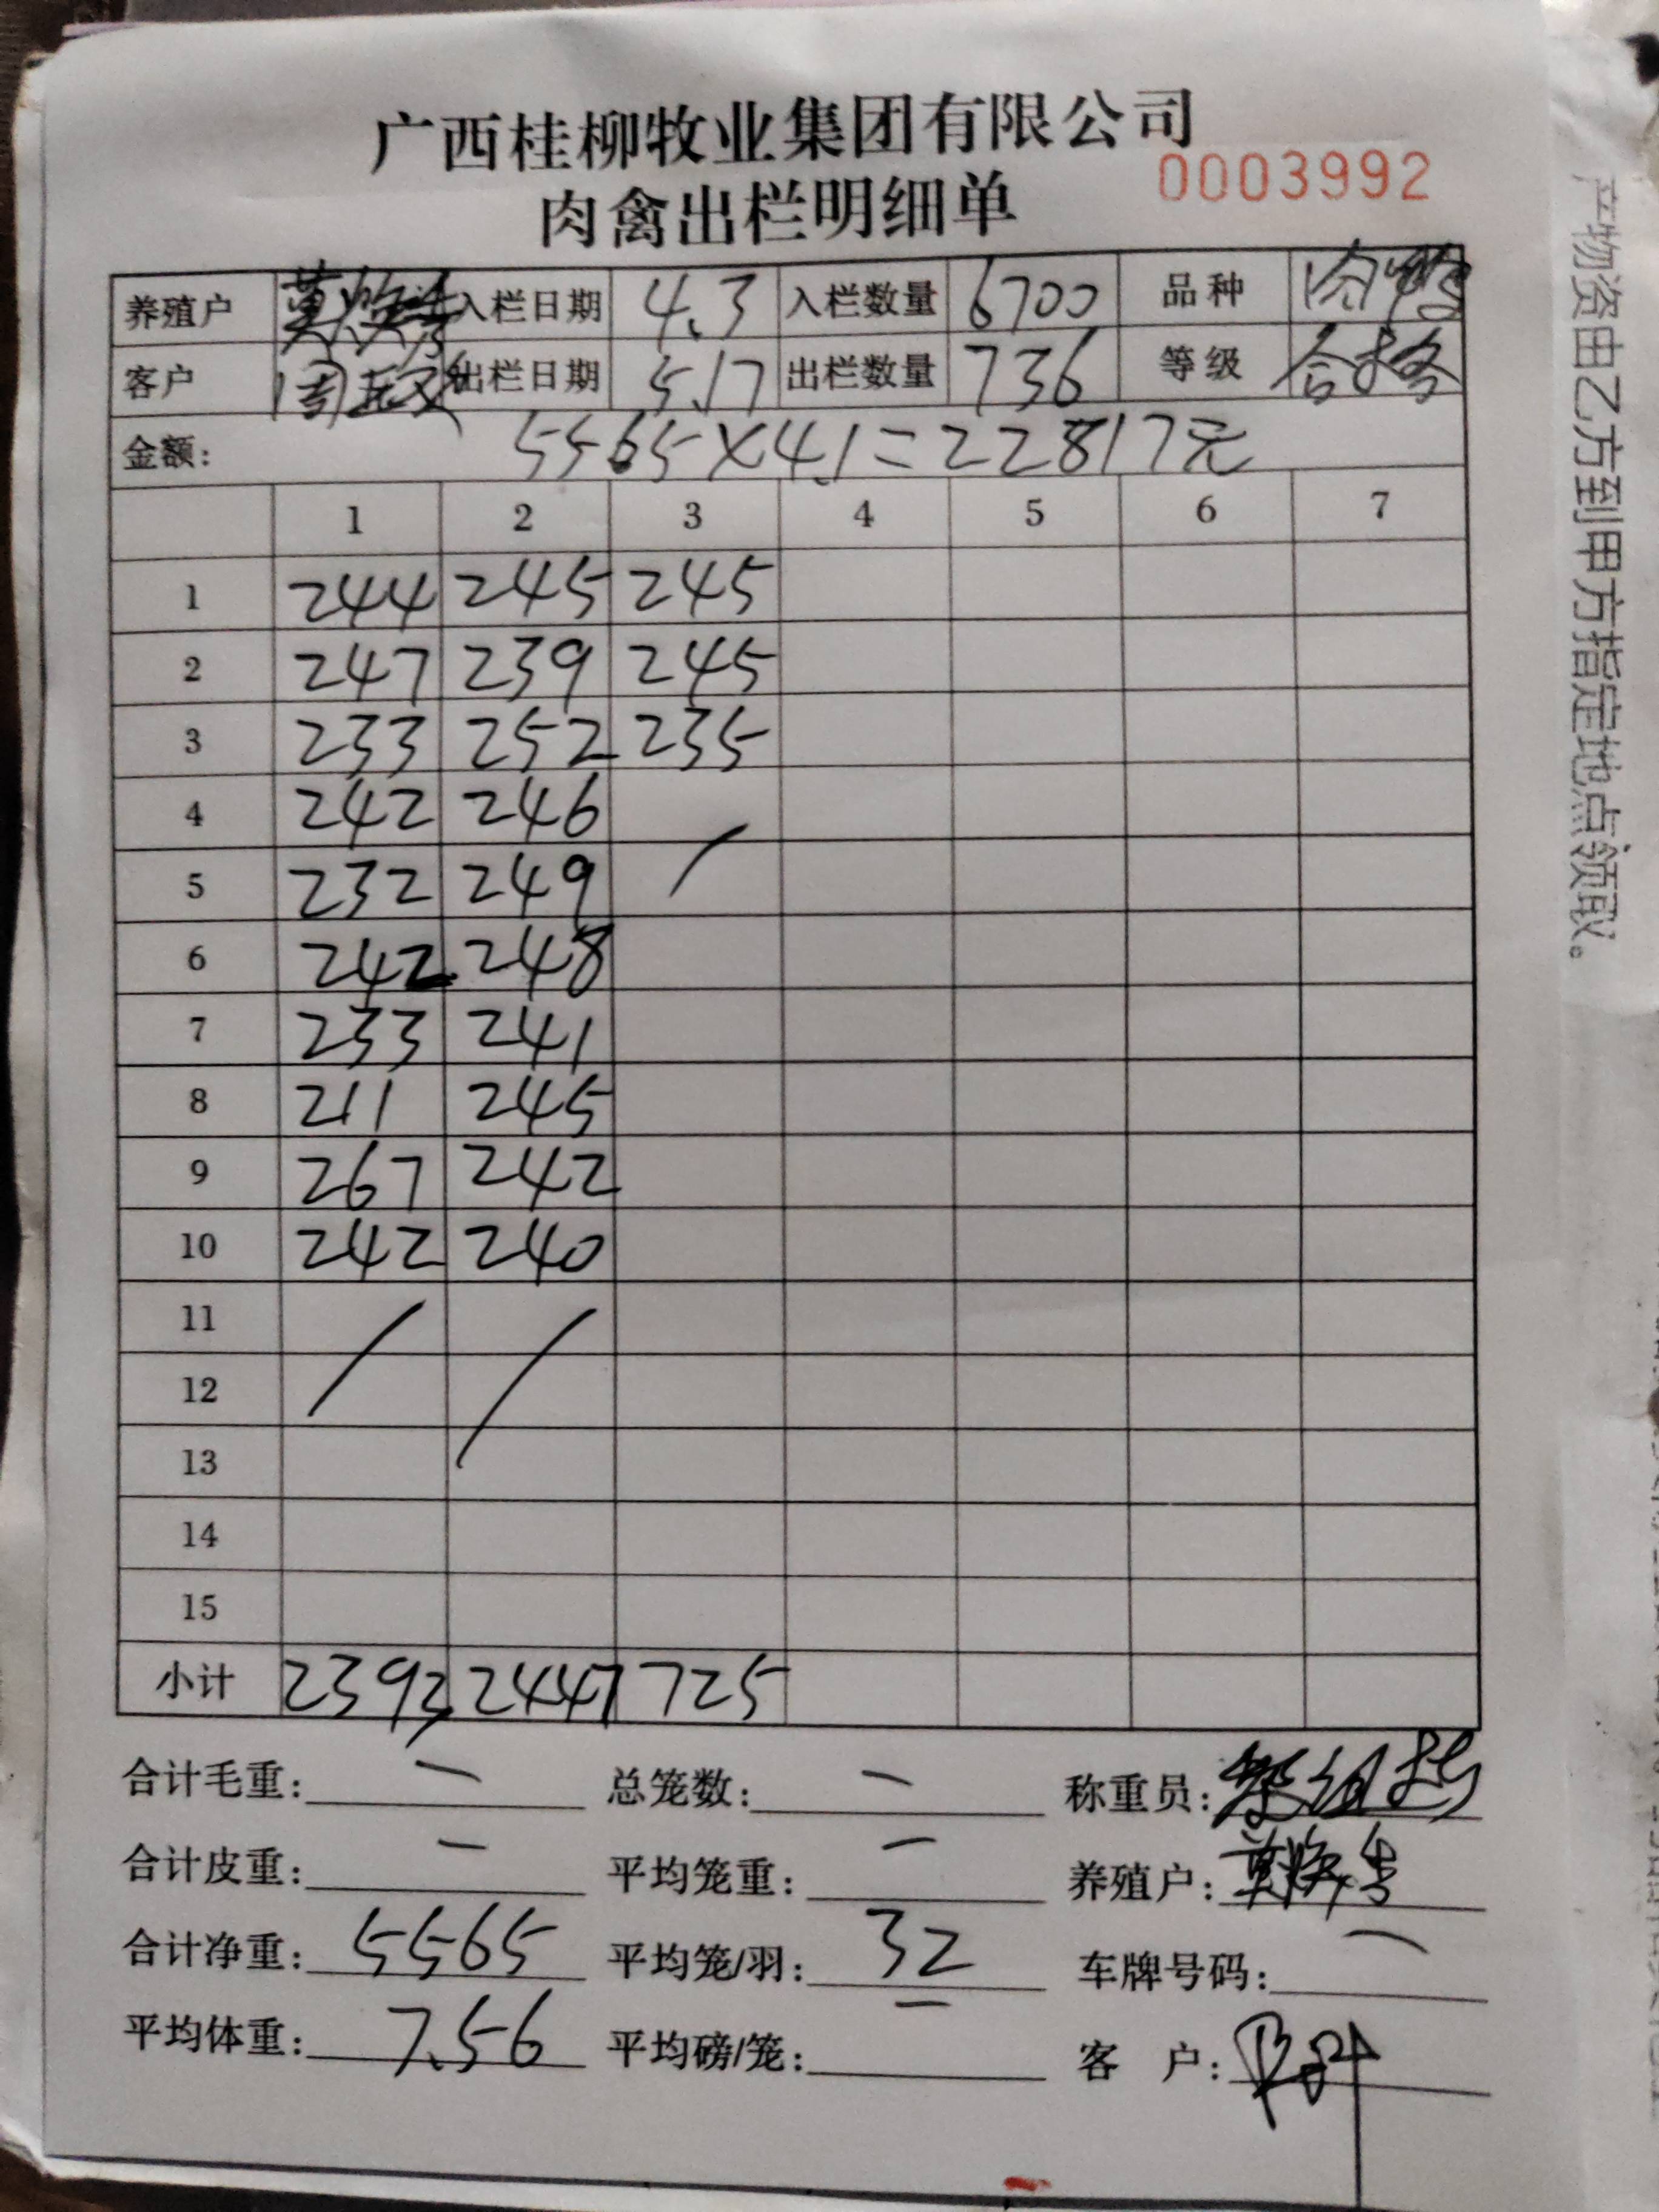 广西桂柳牧业集团有限公司
0003992
肉禽出栏明细单
养殖户 入栏日期 4.3 入栏数量 6700 品种 肉鸭
客户 出栏日期 5.17 出栏数量 736 等级 合格
金额: 5565×4.1=22817元
1 2 3 4 5 6 7
1 244 245 245
2 247 239 245
3 233 252 235
4 242 246
5 232 249 /
6 242 248
7 233 241
8 211 245
9 267 242
10 242 240
11 / /
12
13
14
15
小计 2393 2447 725
合计毛重: — 总笼数: — 称重员:
合计皮重: — 平均笼重: — 养殖户:
合计净重: 5565 平均笼/羽: 32 车牌号码: —
平均体重: 7.56 平均磅/笼: — 客户:
产物资由乙方到甲方指定地点领取。